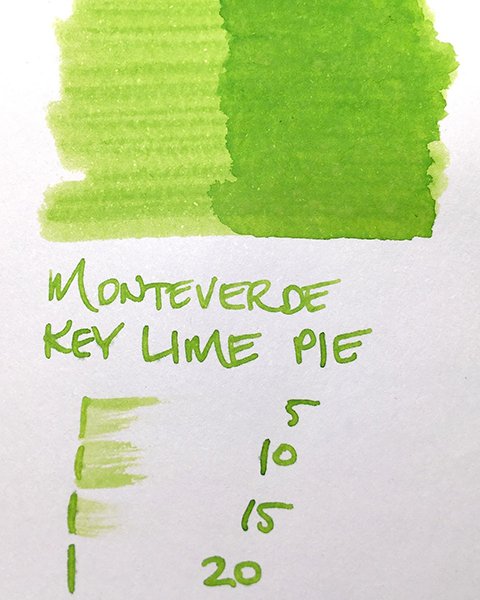 MONTEVERDE
KEY LIME PIE
5
10
15
20